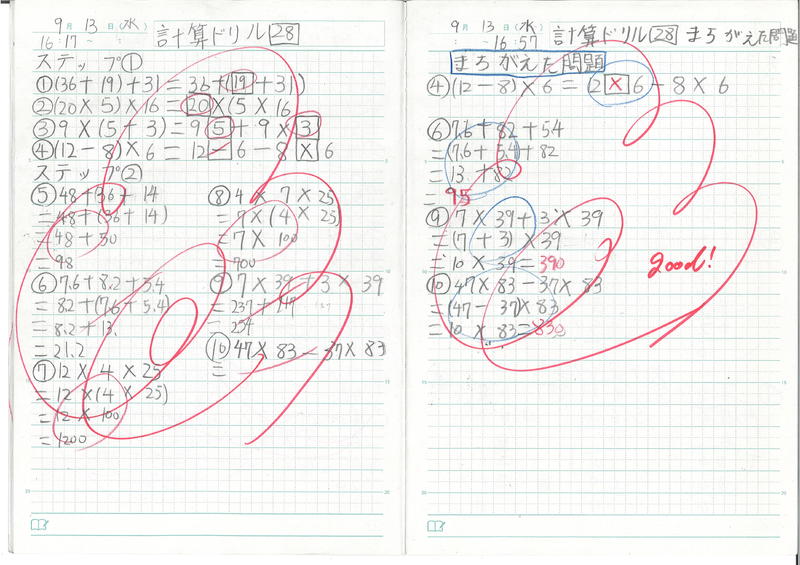 9月 13日(水) 計算ドリル 28
16:17～
ステップ①
①(36+19)+31=36+(19+31)
②(20×5)×16=20×(5×16
③9×(5+3)=9 5+9×3
④(12-8)×6=12-6-8×6
ステップ②
⑤48+36+14
=48+(36+14)
=48+50
=98
⑥7.6+8.2+5.4
=8.2+(7.6+5.4)
=8.2+13.
=21.2
⑦12×4×25
=12×(4×25)
=12×100
=1200
⑧4×7×25
=7×(4×25)
=7×100
=700
⑨7×39+3×39
=237+147
=254
⑩47×83-37×83
=
9月 13日(水) 計算ドリル 28 まちがえた問題
～16:57
まちがえた問題
④(12-8)×6=(2×6-8×6
⑥7.6+82+54
=(7.6+5.4)+82
=13+82
=95
⑨7×39+3×39
=(7+3)×39
=10×39=390
⑩47×83-37×83
=(47-37)×83
=10×83=830
good!